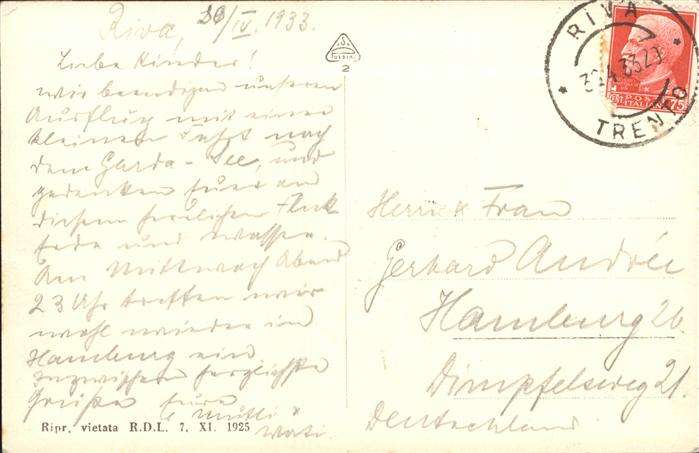 Riva, 30/IV. 1933.
Liebe Kinder!
wir beendigen unseren
Ausflug mit einer
kleinen Fahrt nach
dem Garda-See, und
gedenken Euer an
diesem herrlichen Fleck
Erde und Wasser.
Am Mittwoch Abend
23 Uhr treffen wir
wohl wieder in
Hamburg ein
Inzwischen herzlichste
Grüße Eure
Mutti &
Vati.
Ripr. vietata R.D.L. 7. XI. 1925
2
RIVA
TRENTO
POSTE
ITALIANE
75
Herrn & Frau
Gerhard Andrée
Hamburg 26.
Dimpfelsweg 21.
Deutschland